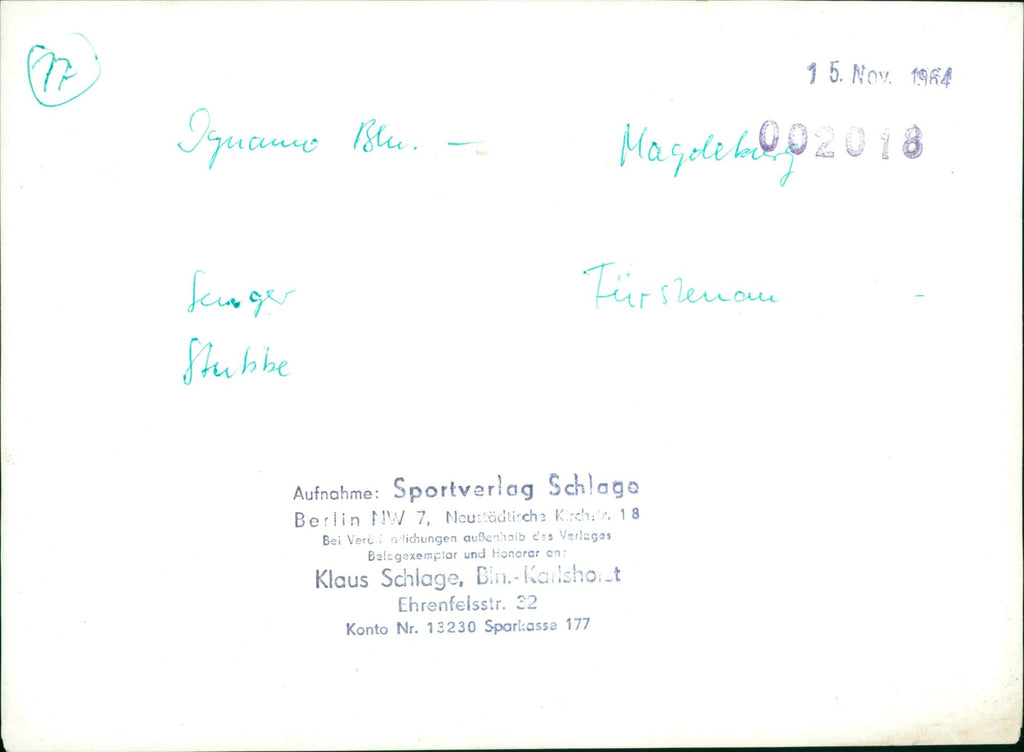 17
15. Nov. 1964
Dynamo Bln. — Magdeburg
002018
Senger Fürstenau -
Stubbe
Aufnahme: Sportverlag Schlage
Berlin NW 7, Neustädtische Kirchstr. 18
Bei Veröffentlichungen außerhalb des Verlages
Belegexemplar und Honorar an:
Klaus Schlage, Bln.-Karlshorst
Ehrenfelsstr. 32
Konto Nr. 13230 Sparkasse 177